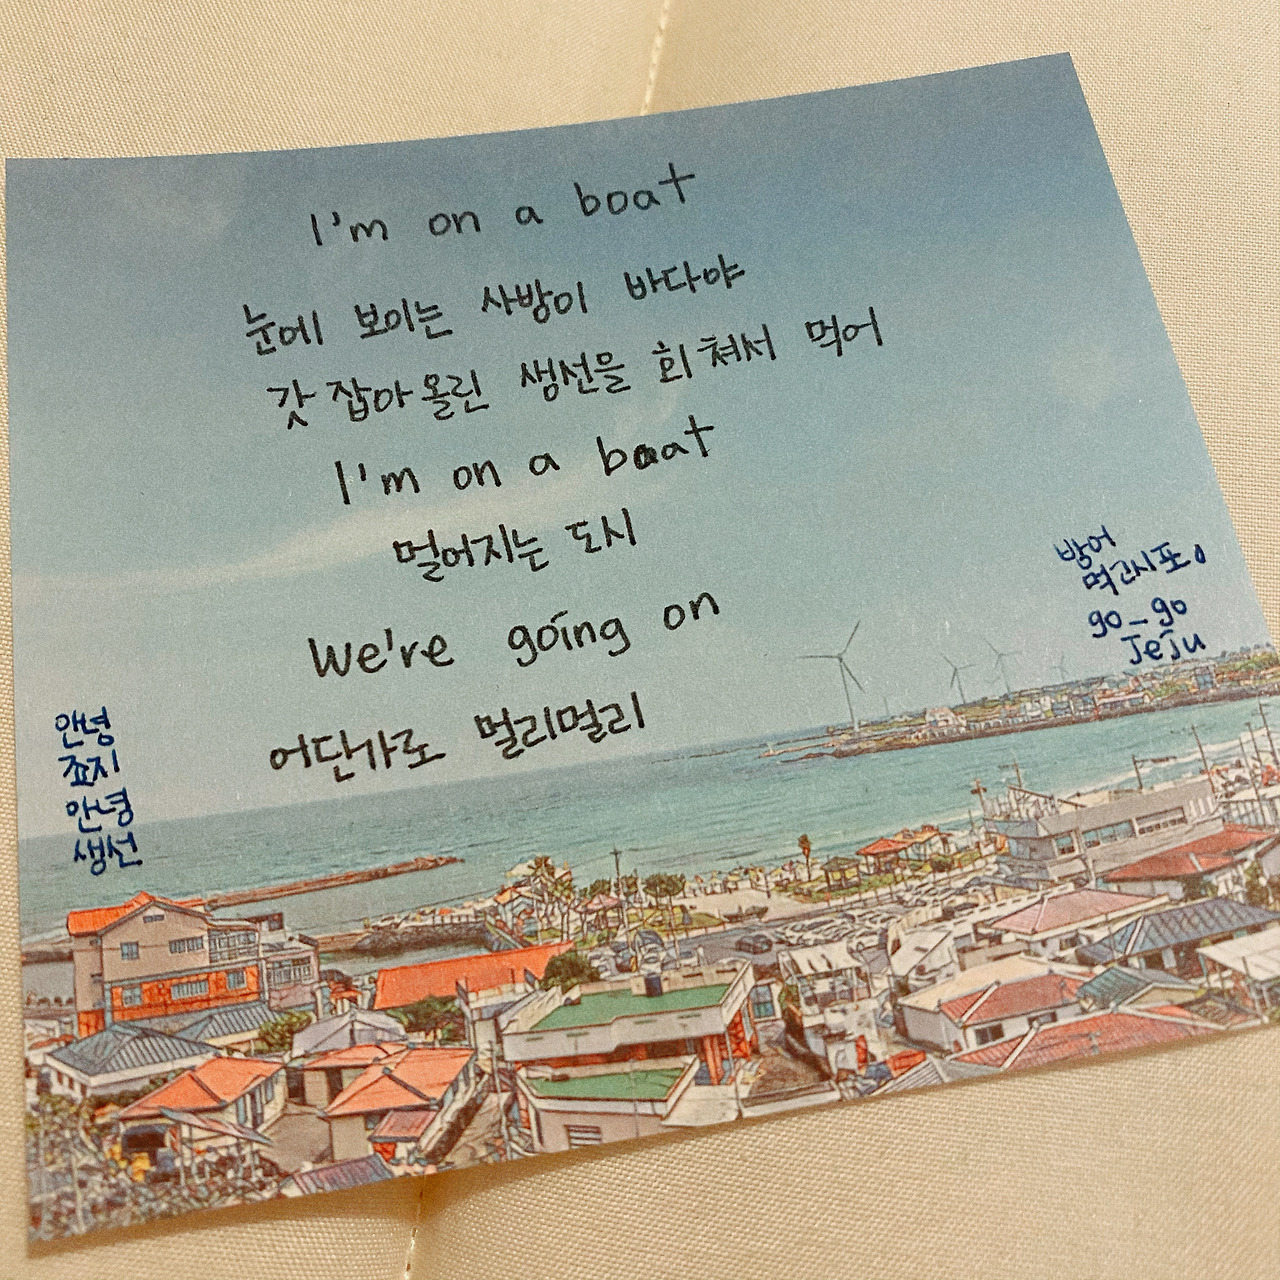 I'm on a boat
눈에 보이는 사방이 바다야
갓 잡아 올린 생선을 회 쳐서 먹어
I'm on a boat
멀어지는 도시
We're going on
어딘가로 멀리멀리
방어
먹고시포。
go_go
JeJu
안녕
죠지
안녕
생선